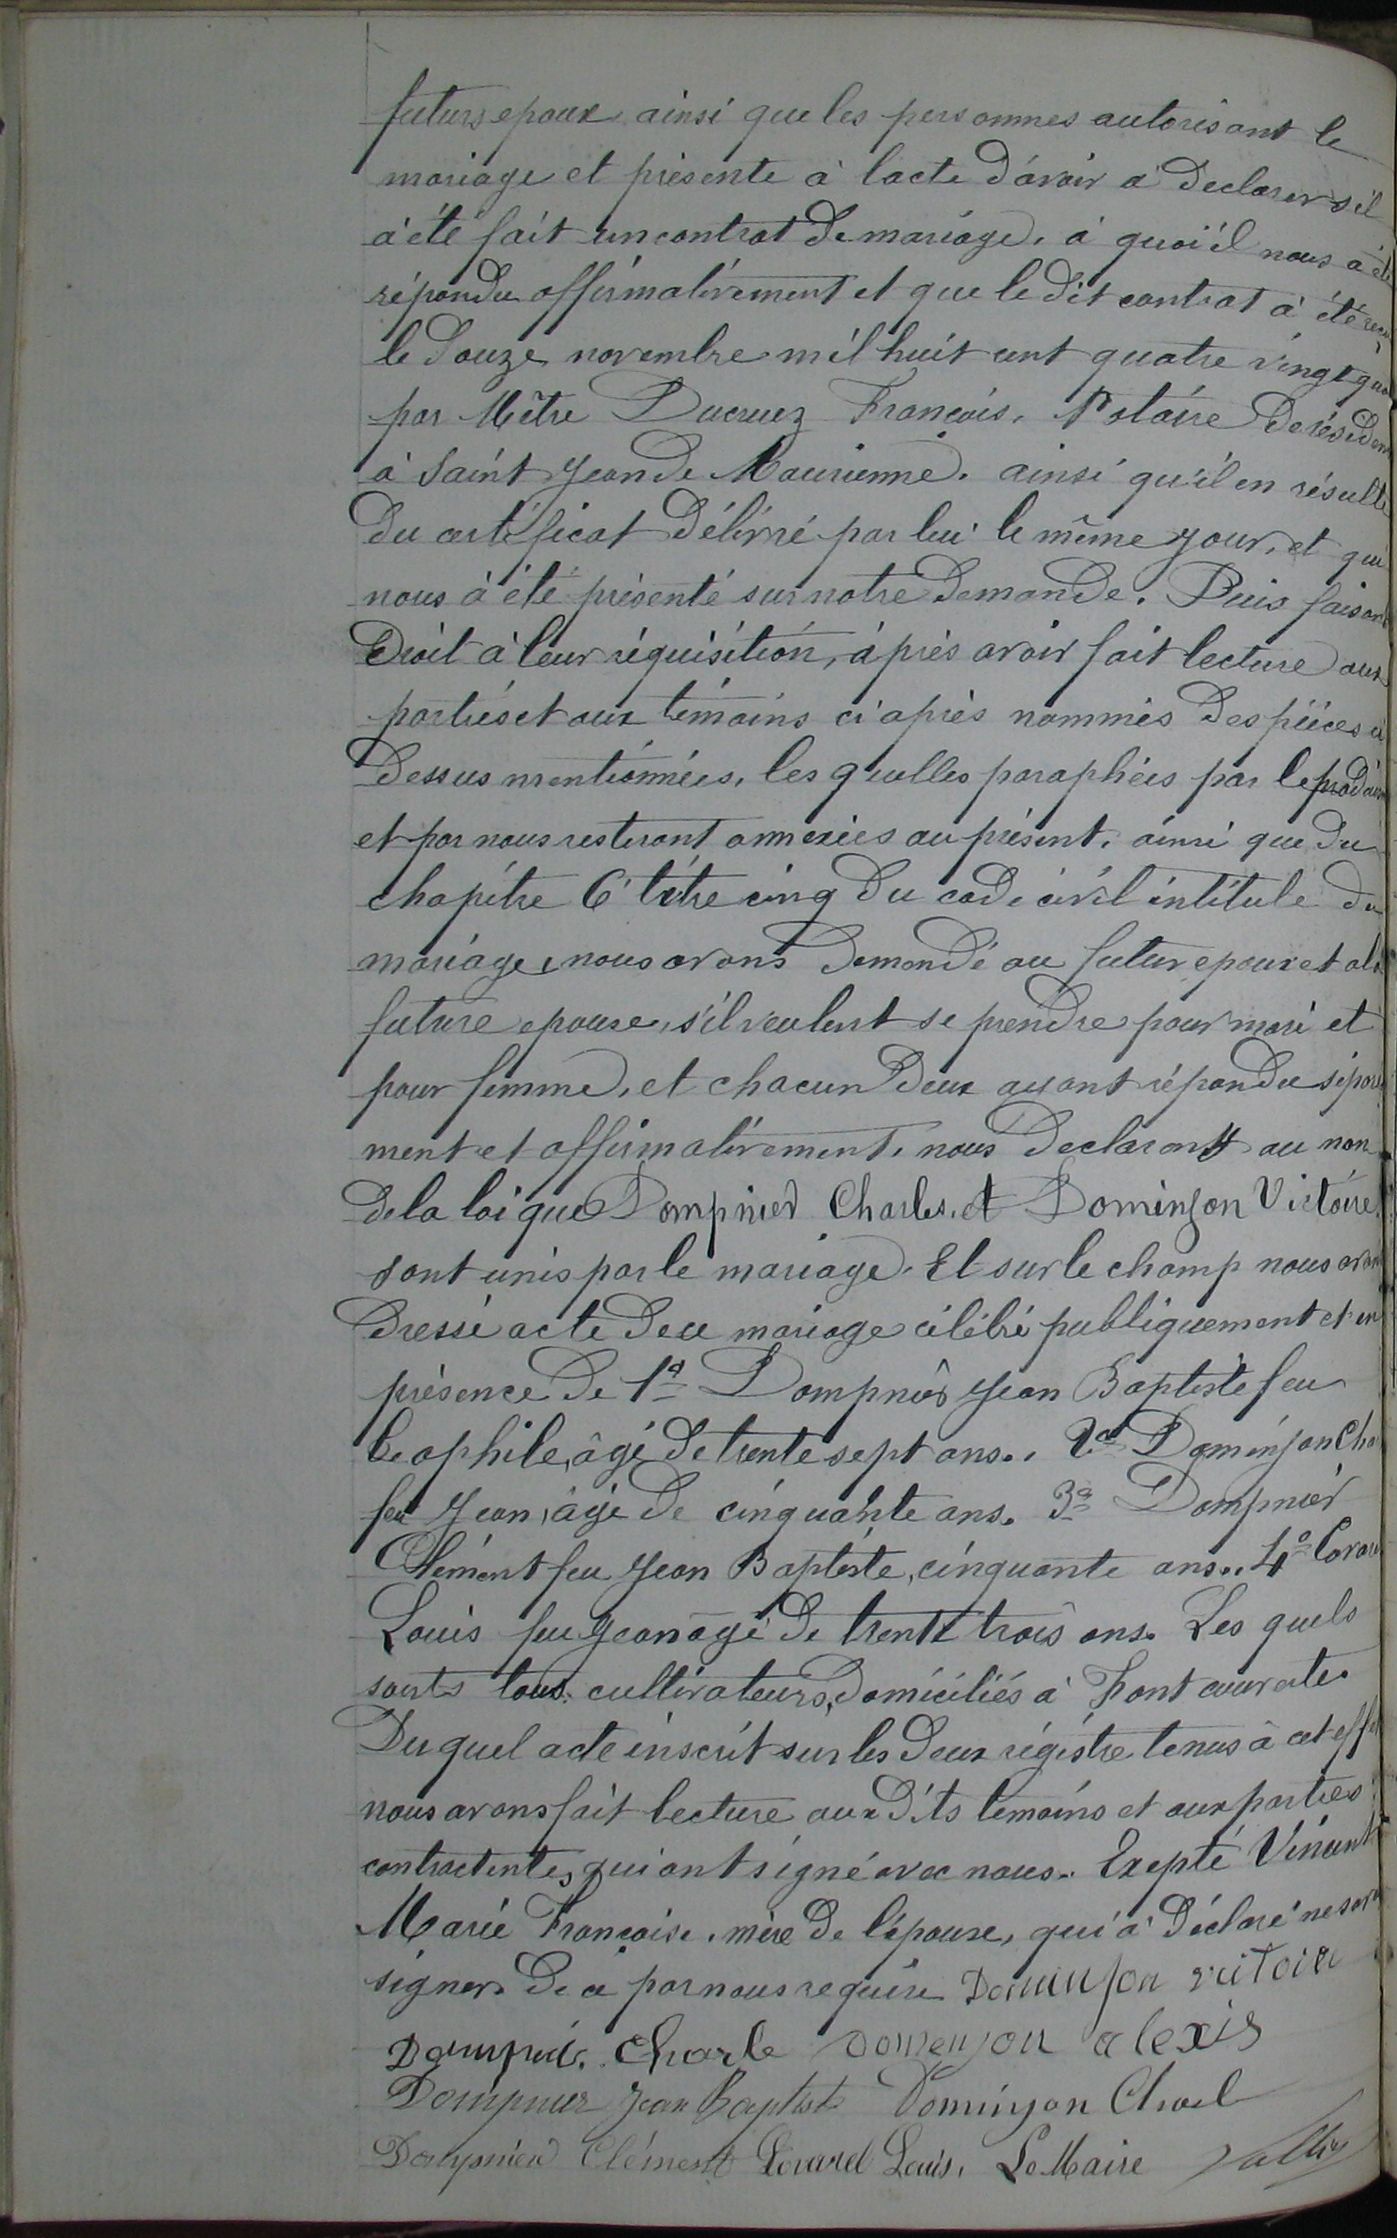 futurs epoux ainsi que les personnes autorisant le
mariage et présente à lacte d'avoir a declarer s'il
à été fait un contrat de mariage, à quoi il nous a été
répondu affirmativement et que le dit contrat à été reçu
le douze novembre mil huit cent quatre vingt
par Mêtre Ducruez François, Notaire de résidence
à Saint Jean de Maurienne. ainsi qu'il en résulte
du certificat délivré par lui le même jour, et qui
nous à été présenté sur notre demande. Puis faisant
droit à leur réquisition, àprès avoir fait lecture aux
parties et aux témoins ci après nommés des pièces ci
dessus mentionnées, les quelles paraphées par le
et par nous resteront annexées au présent, ainsi que du
chapitre 6 titre cinq du code civil intitule du
mariage, nous avons demandé au futur epoux et à la
future epouse, s'il veulent se prendre pour mari et
pour femme, et chacun deux ayant répondu séparé
ment et affirmativement, nous declarons au nom
de la loi que Dompnier Charles et Dominjon Victoire
sont unis par le mariage. Et sur le champ nous avons
dressé acte de ce mariage célébré publiquement et en
présence de 1° Dompnier Jean Baptiste feu
âgé de trente sept ans., 2° Dominjon Cha
feu Jean, âgé de cinquante ans. 3° Dompnier
Clément feu Jean Baptiste, cinquante ans., 4°
Louis feu Jean âgé de trente trois ans. Les quels
sont tous cultivateurs, domiciliés à Fontcouverte
Du quel acte inscrit sur les deux régistre tenus à cet effet
nous avons fait lecture aux dits temoins et aux parties
contractente, qui ont signé avec nous. Exepté Vincent
Marie Françoise, mère de l'épouse, qui à déclaré ne savoir
signer. de ce par nous requise Dominjon victoire
Dompnier Charle Domenjon alexis
Dompnier Jean Baptiste Dominjon Charl
Dompnier Clément Covarel Louis. Le Maire